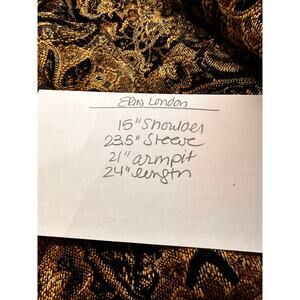 ERIN LONDON
15" Shoulder
23.5" Sleeve
21" armpit
24" length